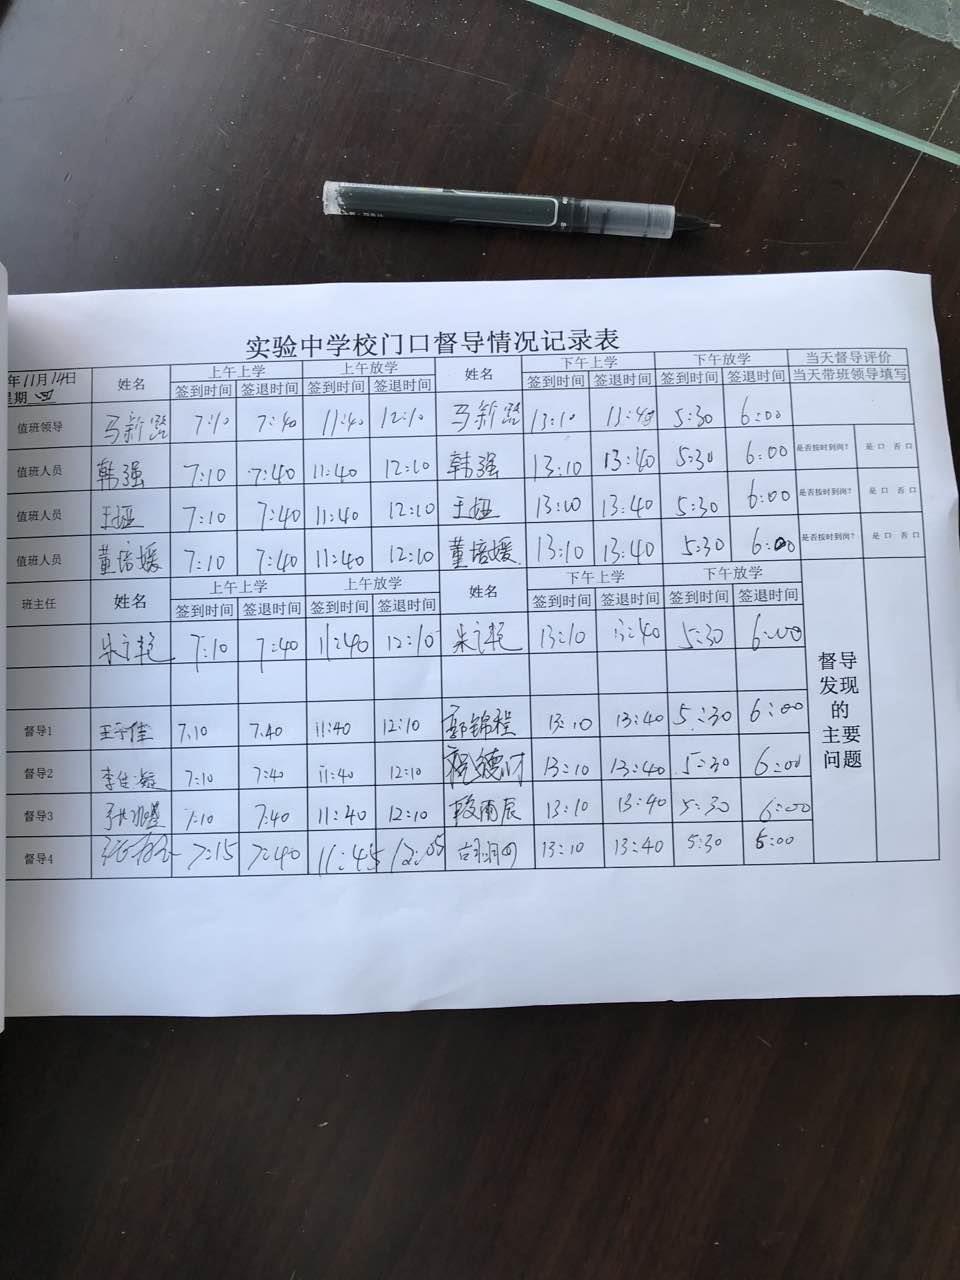 实验中学校门口督导情况记录表
年11月14日 姓名 上午上学 上午放学 姓名 下午上学 下午放学 当天督导评价
星期四 签到时间 签退时间 签到时间 签退时间 签到时间 签退时间 签到时间 签退时间 当天带班领导填写
值班领导 马新 7:10 7:40 11:40 12:10 马新 13:10 11:40 5:30 6:00
值班人员 韩强 7:10 7:40 11:40 12:10 韩强 13:10 13:40 5:30 6:00 是否按时到岗? 是 口 否 口
值班人员 王娅 7:10 7:40 11:40 12:10 王娅 13:00 13:40 5:30 6:00 是否按时到岗? 是 口 否 口
值班人员 董培媛 7:10 7:40 11:40 12:10 董培媛 13:10 13:40 5:30 6:00 是否按时到岗? 是 口 否 口
班主任 姓名 上午上学 上午放学 姓名 下午上学 下午放学
签到时间 签退时间 签到时间 签退时间 签到时间 签退时间 签到时间 签退时间
朱 7:10 7:40 11:40 12:10 朱 13:10 13:40 5:30 6:00
督导
发现
的
主要
问题
督导1 7:10 7:40 11:40 12:10 郭锦程 13:10 13:40 5:30 6:00
督导2 李佳凝 7:10 7:40 11:40 12:10 13:10 13:40 5:30 6:00
督导3 7:10 7:40 11:40 12:10 段雨辰 13:10 13:40 5:30 6:00
督导4 7:15 7:40 11:45 12:05 13:10 13:40 5:30 6:00